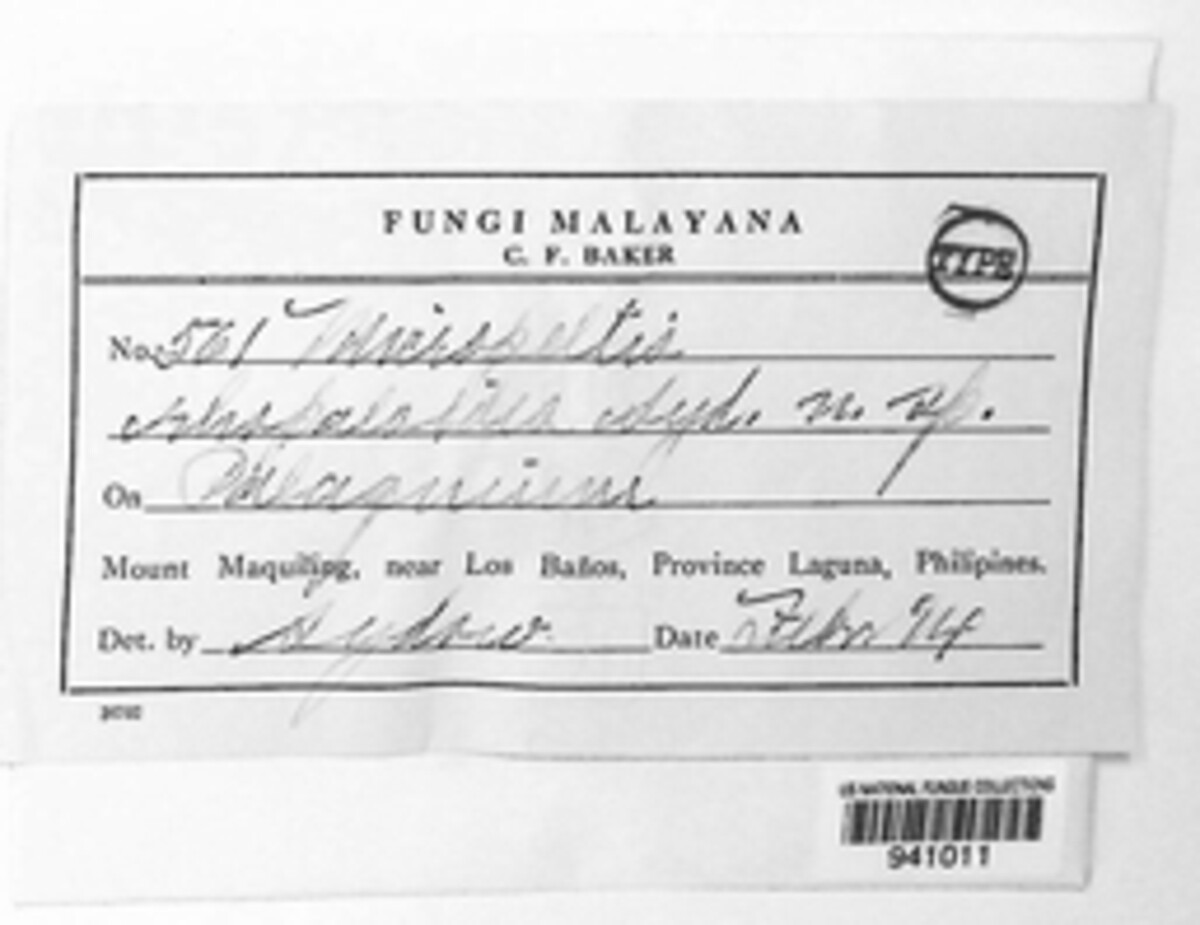 FUNGI MALAYANA
C. F. BAKER
TYPE
No. 561
Syd. n. sp.
On
Mount Maquiling, near Los Baños, Province Laguna, Philipines.
Det. by Sydow Date Feb. '14
US NATIONAL FUNGUS COLLECTIONS
941011